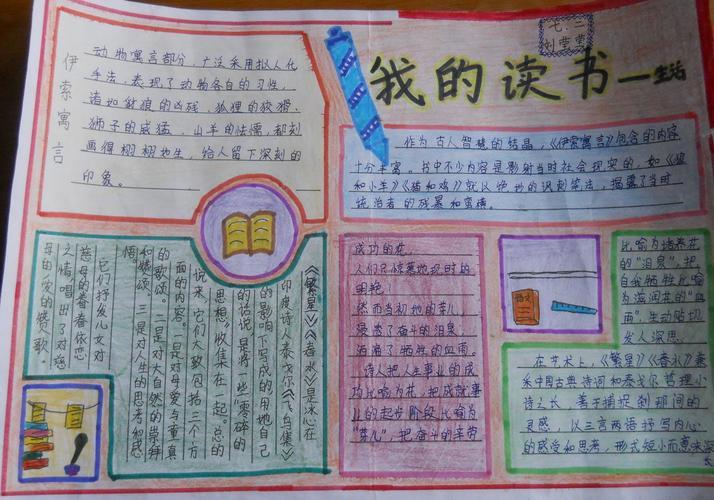 七.二
刘莹莹
我的读书—生活
伊索寓言
动物寓言部分，广泛采用拟人化
手法，表现了动物各自的习性，
诸如豺狼的凶残，狐狸的狡猾，
狮子的威猛，山羊的怯懦，都刻
画得栩栩地生，给人留下深刻的
印象。
作为古人智慧的结晶，《伊索寓言》包含的内容
十分丰富。书中不少内容是影射当时社会现实的，如《狼
和小羊》《猫和鸡》就以绝妙的讽刺笔法，揭露了当时
统治者的残暴和蛮横。
《繁星》《春水》是冰心在
印度诗人泰戈尔《飞鸟集》
的影响下写成的，用她自己
的话说，是将一些“零碎的
思想”收集在一起。总的
说来，它们大致包括三个方
面的内容。一是对母爱与童真
的歌颂。二是对大自然的崇拜
和赞颂。三是对人生的思考和感
悟。
它们抒发儿女对
慈母的眷眷依恋
之情，唱出了对慈
母的爱的赞歌。
成功的花，
人们只惊慕她现时的
明艳，
然而当初她的芽儿，
浸透了奋斗的泪泉，
洒遍了牺牲的血雨。
诗人把人生事业的成
功比喻为花，把成就事
业的起步阶段比喻为
“芽儿”，把奋斗的辛劳
语文
比喻为浇花
的“泪泉”，把
自我牺牲比喻
为滋润花的“血
雨”，生动贴切
发人深思。
在艺术上，《繁星》《春水》兼
采中国古典诗词和泰戈尔哲理小
诗之长，善于捕捉刹那间的
灵感，以三言两语抒写内心
的感受和思考，形式短小而意味深